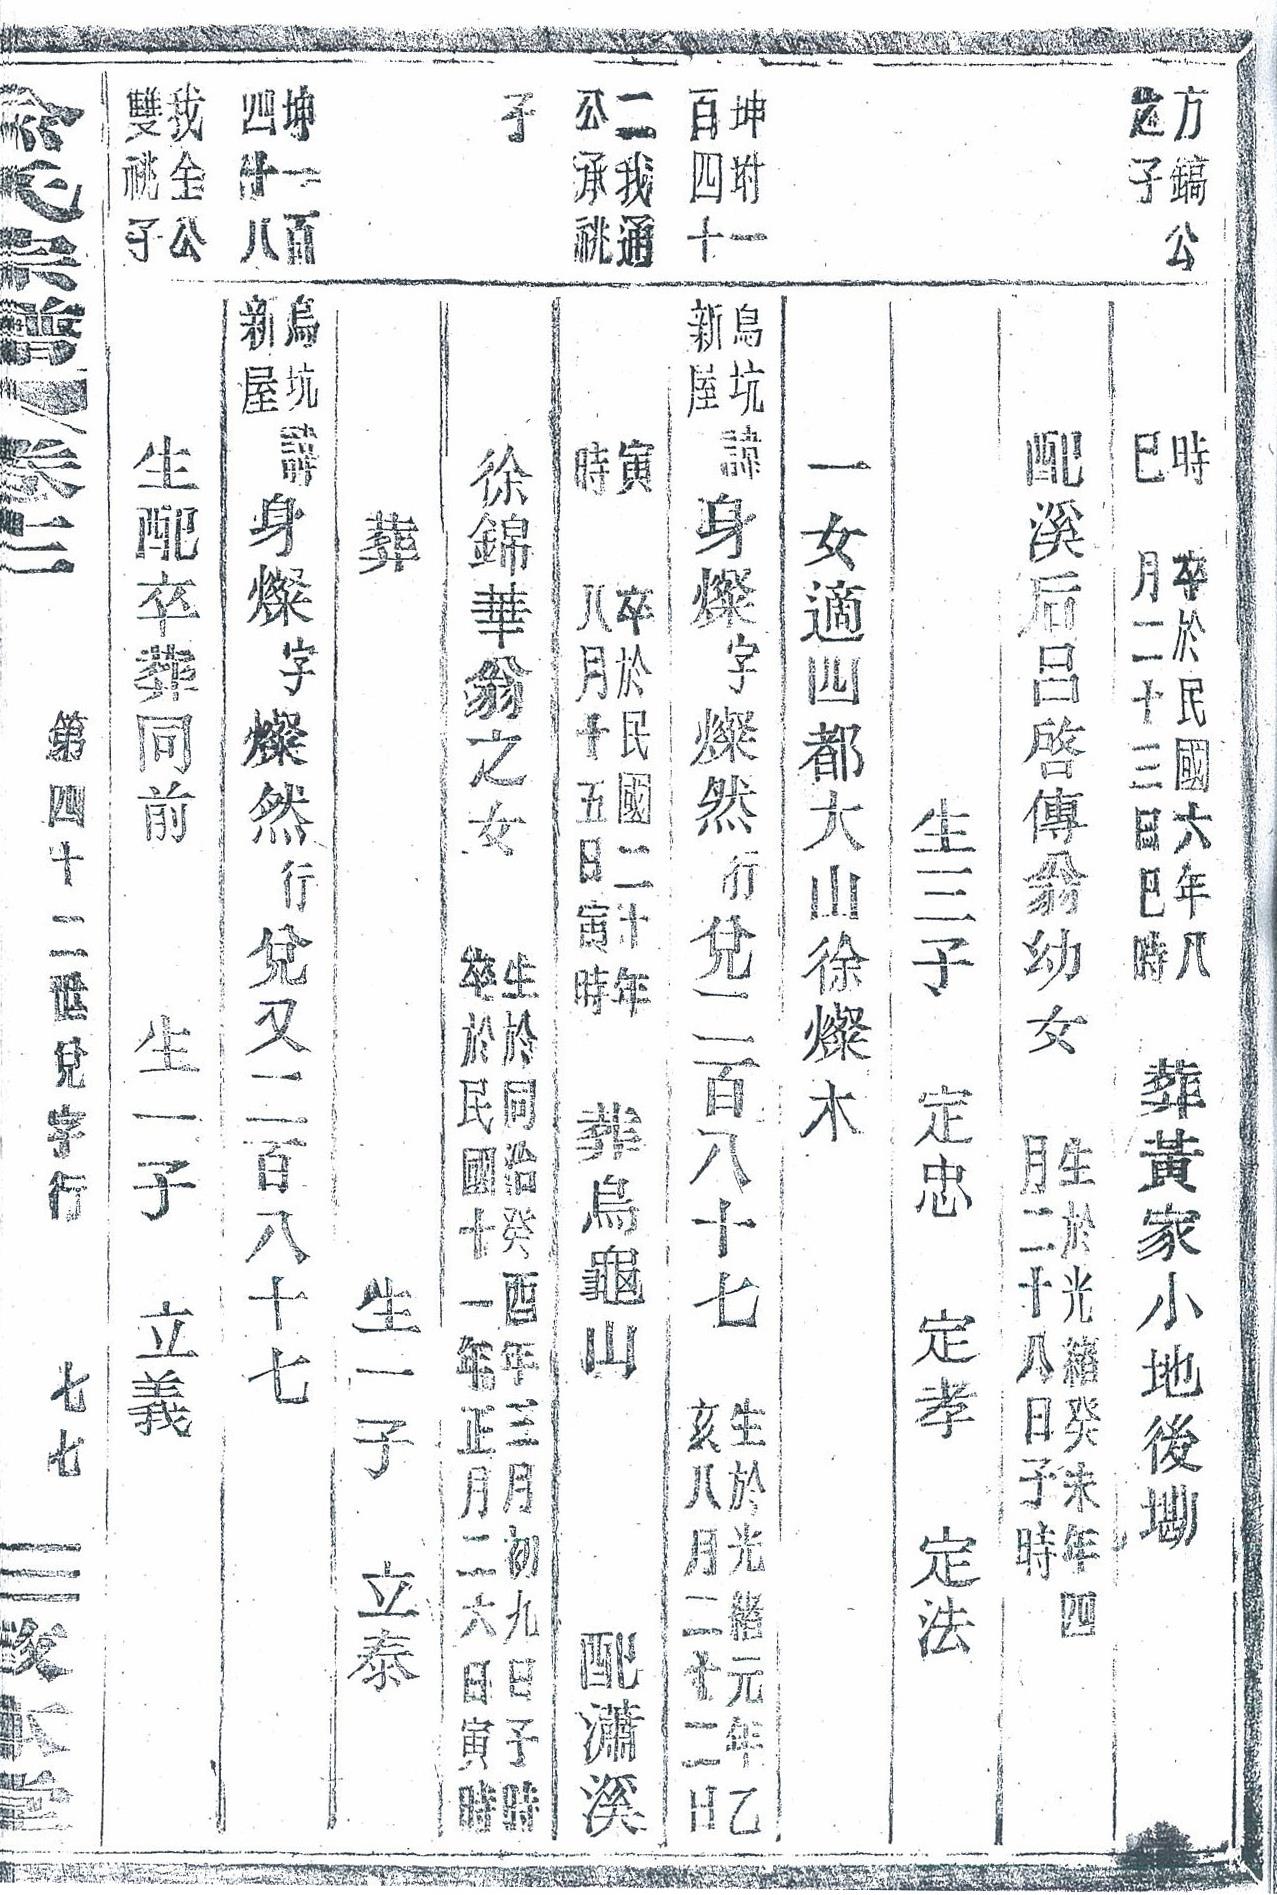 方鎬公
之子
時
巳
卒於民國六年八
月二十三日巳時
葬黃家小地後塝
配溪后呂啓傳翁幼女
生於光緒癸未年四
月二十八日子時
生三子 定忠 定孝 定法
一女適四都大山徐燦木
坤坿一
百四十
烏坑
新屋
諱身燦字燦然行兌二百八十七
生於光緒元年乙
亥八月二十二日
二我通
公承祧
寅
時
卒於民國二十年
八月十五日寅時
葬烏龜山 配瀟溪
子
徐錦華翁之女
生於同治癸酉年三月初九日子時
卒於民國十一年正月二六日寅時
葬 生一子 立泰
坤一百
四十八
烏坑
新屋
諱身燦字燦然行兌又二百八十七
我全公
雙祧子
生配卒葬同前 生一子 立義
余氏宗譜 卷二 第四十二世兌字行 七七 敦本堂